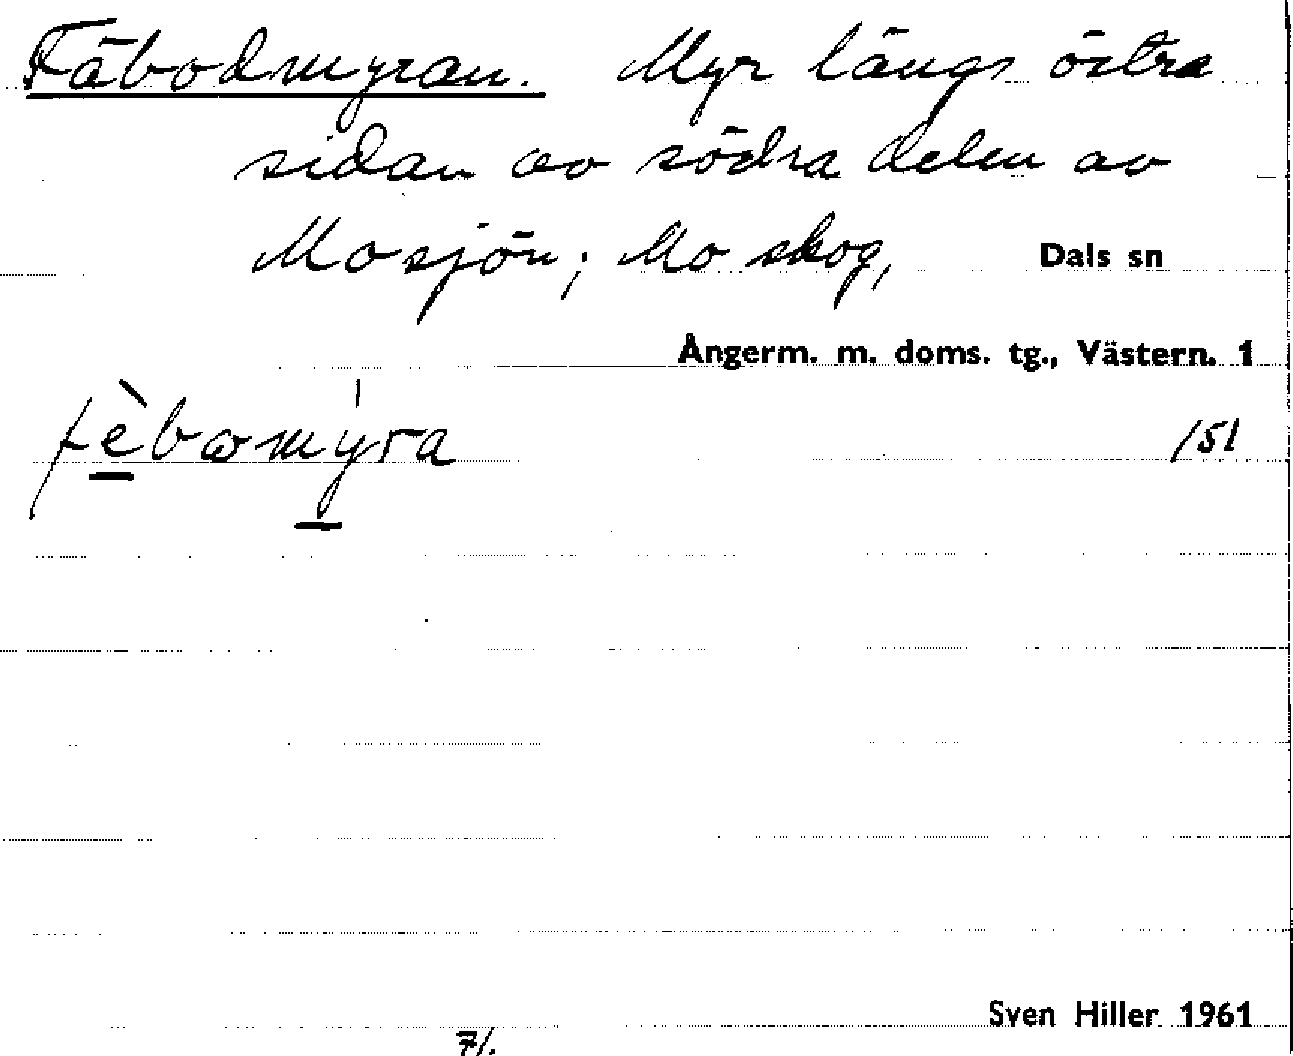 Fäbodmyran. Myr längs östra
sidan av södra delen av
Mosjön; Mo skog, Dals sn
Ångerm. m. doms. tg., Västern. 1
fèbωmýra /51
Sven Hiller 1961
7/.